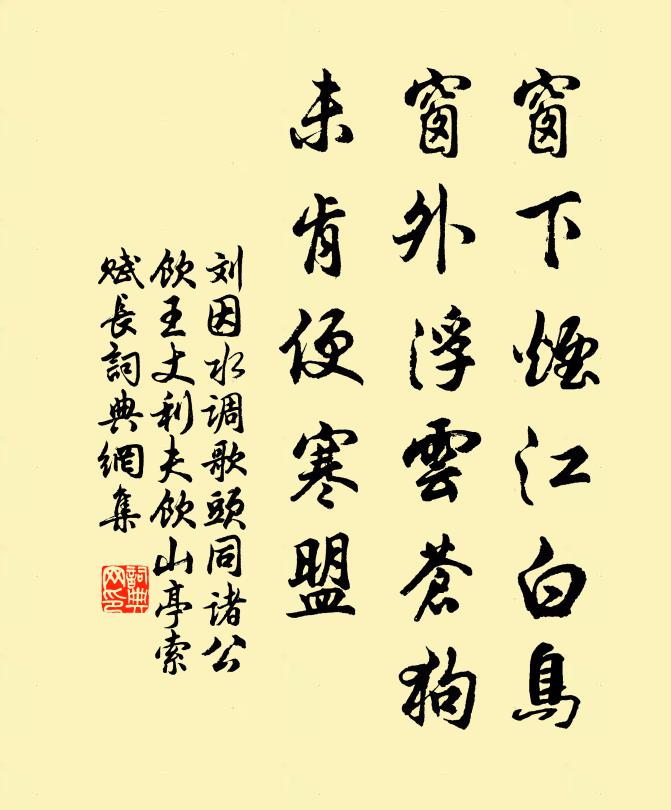 窗下煙江白鳥
窗外浮雲蒼狗
未肯便寒盟
刘因水调歌頭同诸公
饮王丈利夫饮山亭索
赋長詞典網集
詞典网印